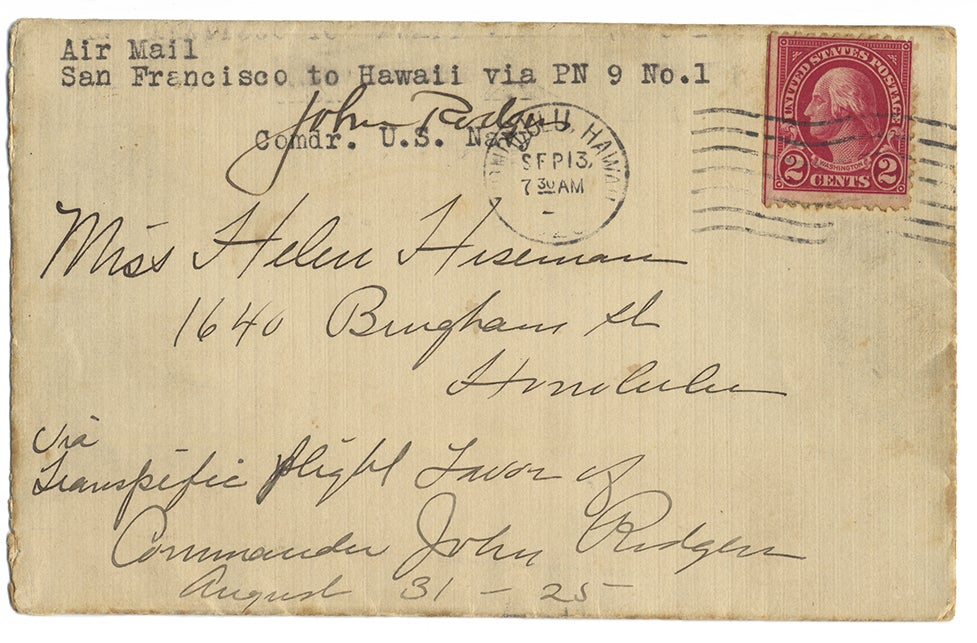 Air Mail
San Francisco to Hawaii via PN 9 No.1
John Rodgers
Comdr. U.S. Navy
HONOLULU, HAWAII
SEP 13
7 30 AM
UNITED STATES POSTAGE
WASHINGTON
2 CENTS 2
Miss Helen Hiseman
1640 Bingham St
Honolulu
Via
Transpific flight Favor of
Commander John Rodgers
August 31 - 25